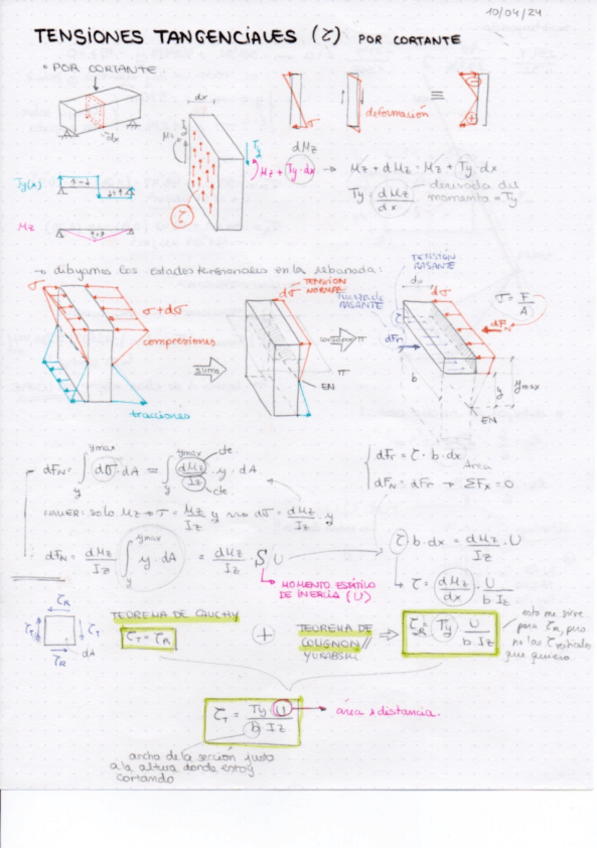 10/04/24
TENSIONES TANGENCIALES (τ) POR CORTANTE
• POR CORTANTE
dx
dx
Mz
Ty
Mz + Ty·dx
τ
σ
deformación
≡
dMz
→ Mz + dMz = Mz + Ty·dx
Ty = dMz / dx
derivada del
momento = Ty
Ty(x)
Mz
→ dibujamos los estados tensionales en la rebanada:
σ
σ + dσ
compresiones
tracciones
suma
dσ
TENSIÓN
NORMAL
EN
π
TENSIÓN
RASANTE
RASANTE
dx
dσ
τ
dFr
dFN
σ = F / A
b
y
ymax
EN
dFN = ∫ y ymax dσ · dA = ∫ y ymax dMz / Iz · y · dA
cte.
cte.
solo Mz → σ = Mz / Iz · y → dσ = dMz / Iz · y
dFN = dMz / Iz ∫ y ymax y · dA = dMz / Iz · S U
MOMENTO ESTÁTICO
DE INERCIA (U)
dFr = τ · b · dx
Área
dFN = dFr → ΣFx = 0
τ · b · dx = dMz / Iz · U
τ = dMz / dx · U / b Iz
τR
τT
τT
τR
dA
TEOREMA DE CAUCHY
τT = τR
+
TEOREMA DE
COLIGNON//
⇒
τR = Ty · U / b Iz
esto me sirve
para τR, pero
no las τ verticales
que quiero
τT = Ty · U / b Iz
→ área x distancia.
ancho de la sección justo
a la altura donde estoy
cortando